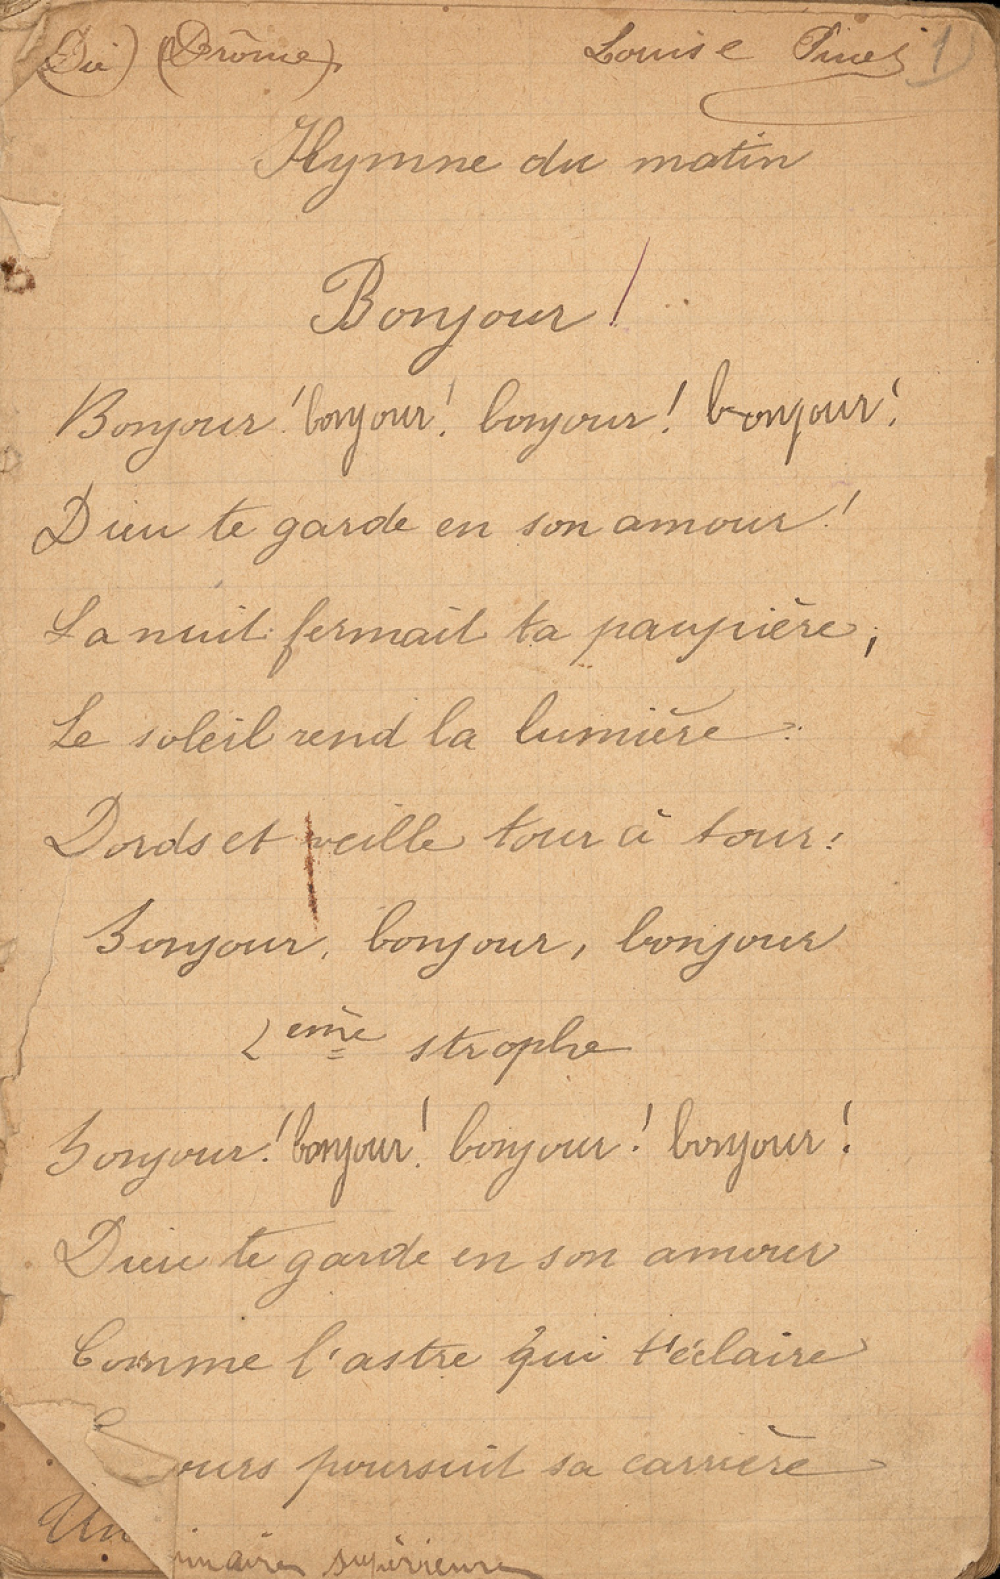 (Die) (Drôme). Louise Pinet 1
Hymne du matin
Bonjour !
Bonjour ! bonjour ! bonjour ! bonjour !
Dieu te garde en son amour !
La nuit fermait ta paupière ;
Le soleil rend la lumière :
Dords et veille tour à tour :
Bonjour, bonjour, bonjour
2ème strophe
Bonjour ! bonjour ! bonjour ! bonjour !
Dieu te garde en son amour
Comme l'astre qui t'éclaire
ours poursuit sa carrière
Un
imaire supérieure